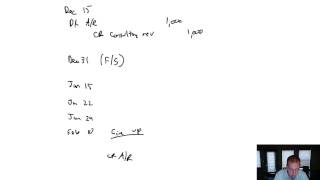 Dec 15
DR A/R 1,000
CR Consulting rev 1,000
Dec 31 (F/S)
Jan 15
Jan 22
Jan 29
Feb 10 Give up
CR A/R